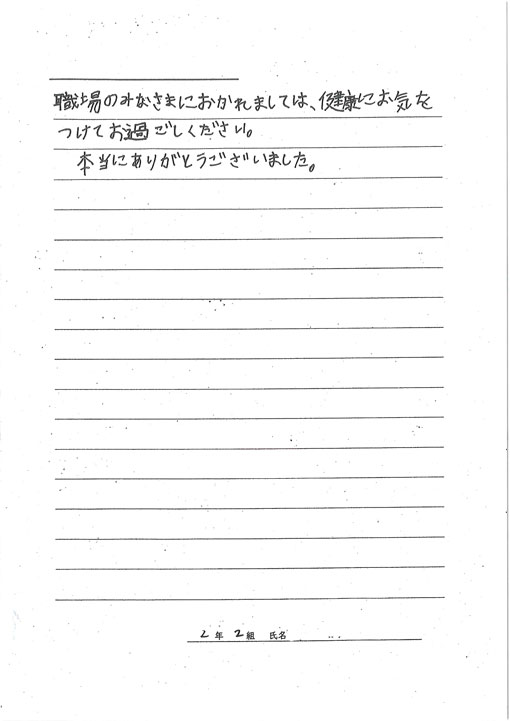 職場のみなさまにおかれましては、健康にお気を
つけてお過ごしください。
本当にありがとうございました。
2年2組 氏名